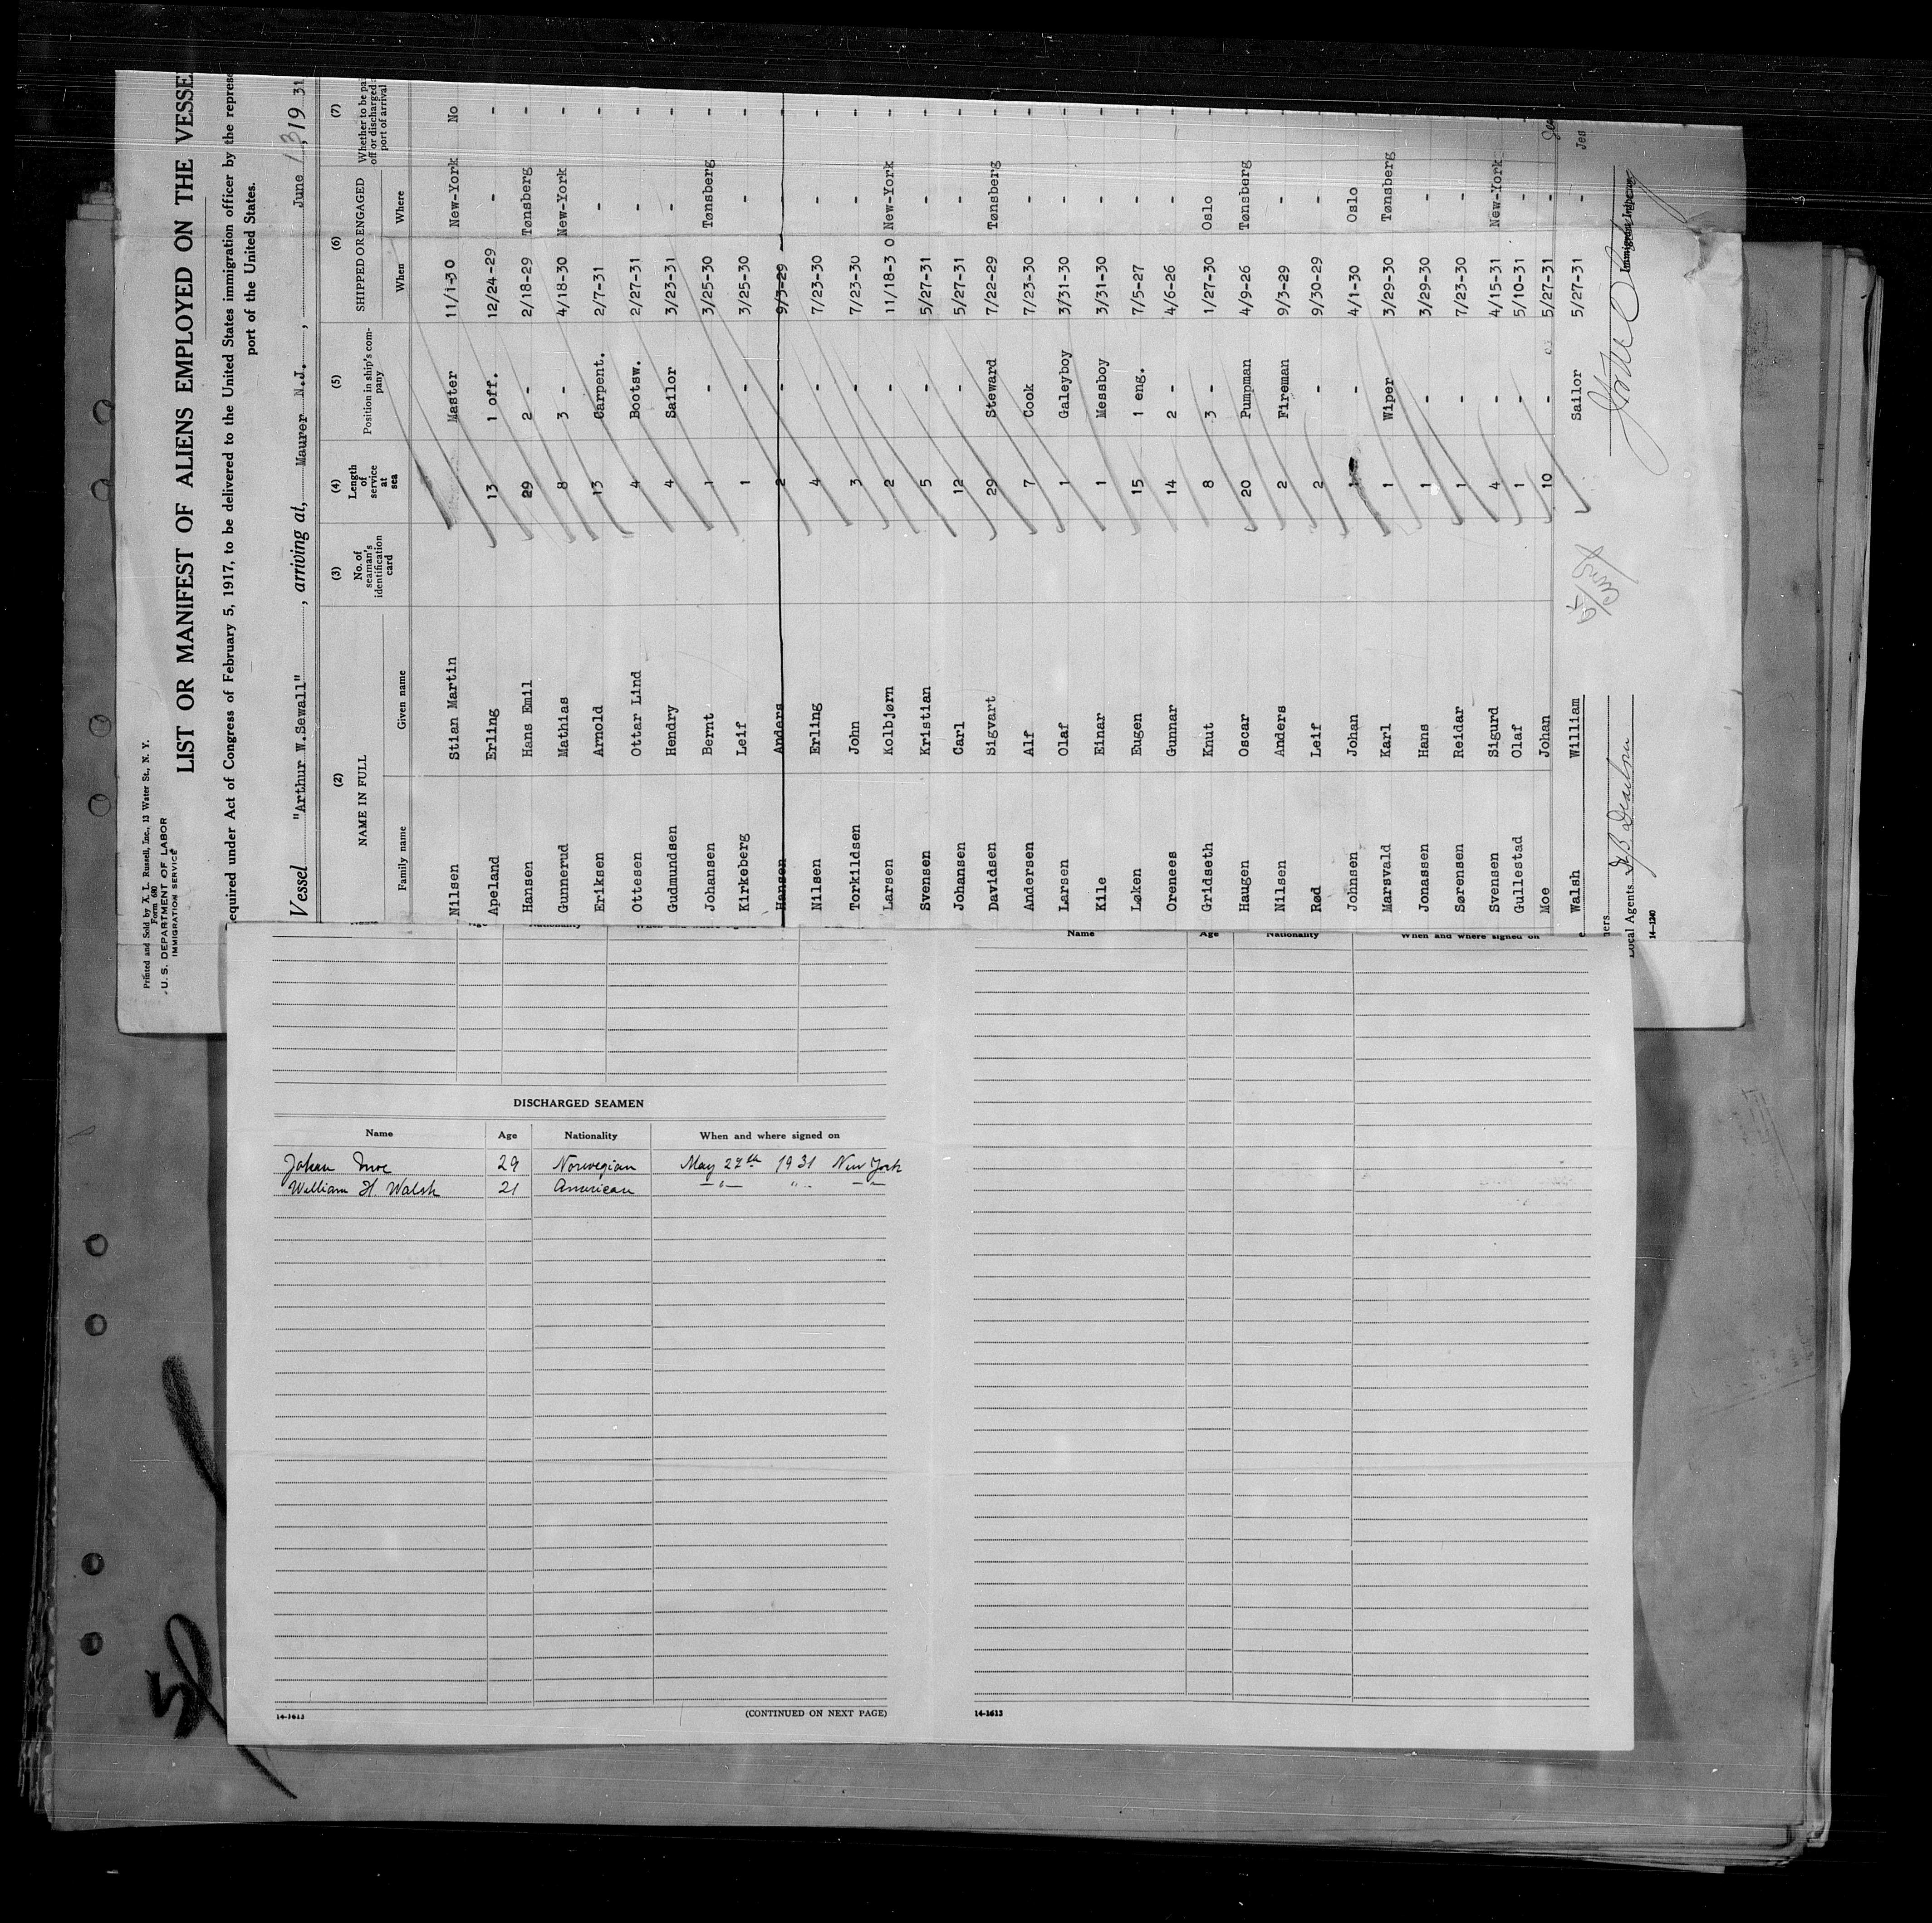 Printed and Sold by X. L. Russell, Inc., 13 Water St., N. Y.
Form 680
U. S. DEPARTMENT OF LABOR
IMMIGRATION SERVICE
LIST OR MANIFEST OF ALIENS EMPLOYED ON THE VESSE
equired under Act of Congress of February 5, 1917, to be delivered to the United States immigration officer by the represe
port of the United States.
Vessel "Arthur W.Sewall", arriving at, Maurer N.J., June 13, 19 31
(2) (3) (4) (5) (6) (7)
NAME IN FULL No. of seaman's identification card Length of service at sea Position in ship's company SHIPPED OR ENGAGED Whether to be pai off or discharged a port of arrival
Family name Given name When Where
Nilsen Stian Martin Master 11/1-30 New-York No
Apeland Erling 13 1 off. 12/24-29 - -
Hansen Hans Emil 29 2 - 2/18-29 Tønsberg -
Gunnerud Mathias 8 3 - 4/18-30 New-York -
Eriksen Arnold 13 Carpent. 2/7-31 - -
Ottesen Ottar Lind 4 Bootsw. 2/27-31 - -
Gudmundsen Hendry 4 Sailor 3/23-31 - -
Johansen Bernt 1 - 3/25-30 Tønsberg -
Kirkeberg Leif 1 - 3/25-30 - -
Hansen Anders 2 - 9/3-29 - -
Nilsen Erling 4 - 7/23-30 - -
Torkildsen John 3 - 7/23-30 - -
Larsen Kolbjørn 2 - 11/18-3 0 New-York -
Svensen Kristian 5 - 5/27-31 - -
Johansen Carl 12 - 5/27-31 - -
Davidsen Sigvart 29 Steward 7/22-29 Tønsberg -
Andersen Alf 7 Cook 7/23-30 - -
Larsen Olaf 1 Galeyboy 3/31-30 - -
Kile Einar 1 Messboy 3/31-30 - -
Løken Eugen 15 1 eng. 7/5-27 - -
Orenees Gunnar 14 2 - 4/6-26 - -
Gridseth Knut 8 3 - 1/27-30 Oslo -
Haugen Oscar 20 Pumpman 4/9-26 Tønsberg -
Nilsen Anders 2 Fireman 9/3-29 - -
Rød Leif 2 - 9/30-29 - -
Johnsen Johan - 4/1-30 Oslo -
Marsvald Karl 1 Wiper 3/29-30 Tønsberg -
Jonassen Hans 1 - 3/29-30 - -
Sørensen Reidar 1 - 7/23-30 - -
Svensen Sigurd 4 - 4/15-31 New-York -
Gullestad Olaf 1 - 5/10-31 - -
Moe Johan 10 - 5/27-31 -
Walsh William Sailor 5/27-31 - Jes
ners
Local Agents
14-1240
Name Age Nationality When and where signed on
DISCHARGED SEAMEN
Name Age Nationality When and where signed on
Johan Moe 29 Norwegian May 27th 1931 New York
William H. Walsh 21 American -"- " -"-
14-1613
(CONTINUED ON NEXT PAGE)
Name Age Nationality When and where signed on
14-1613